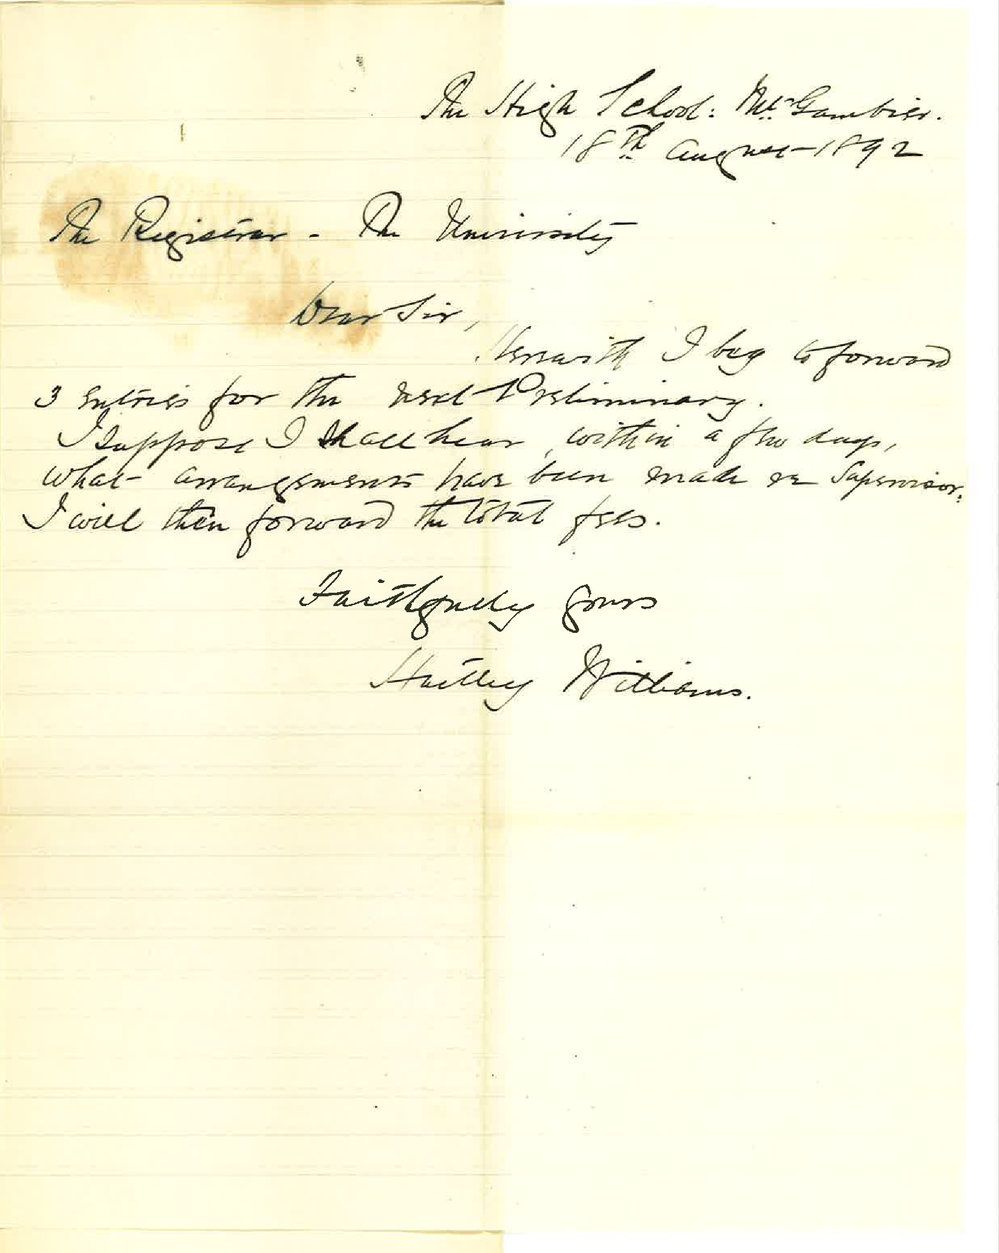 The High School: Mt. Gambier.
18th. August 1892
The Registrar - The University
Dear Sir,
Herewith I beg to forward
3 Entries for the next Preliminary.
I suppose I shall hear, within a few days,
what arrangements have been made re Supervisor.
I will then forward the total fees.
Faithfully yours
Hartley Williams.